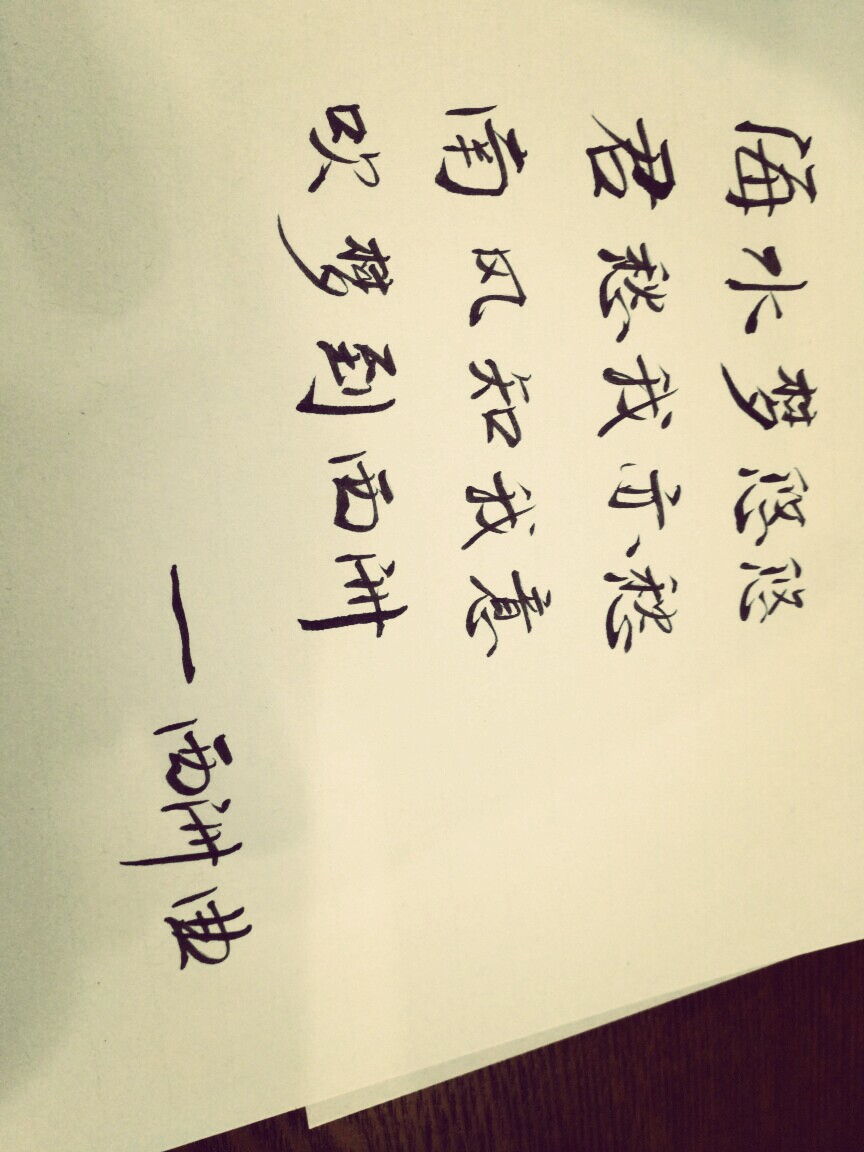 海水梦悠悠
君愁我亦愁
南风知我意
吹梦到西洲
—西洲曲